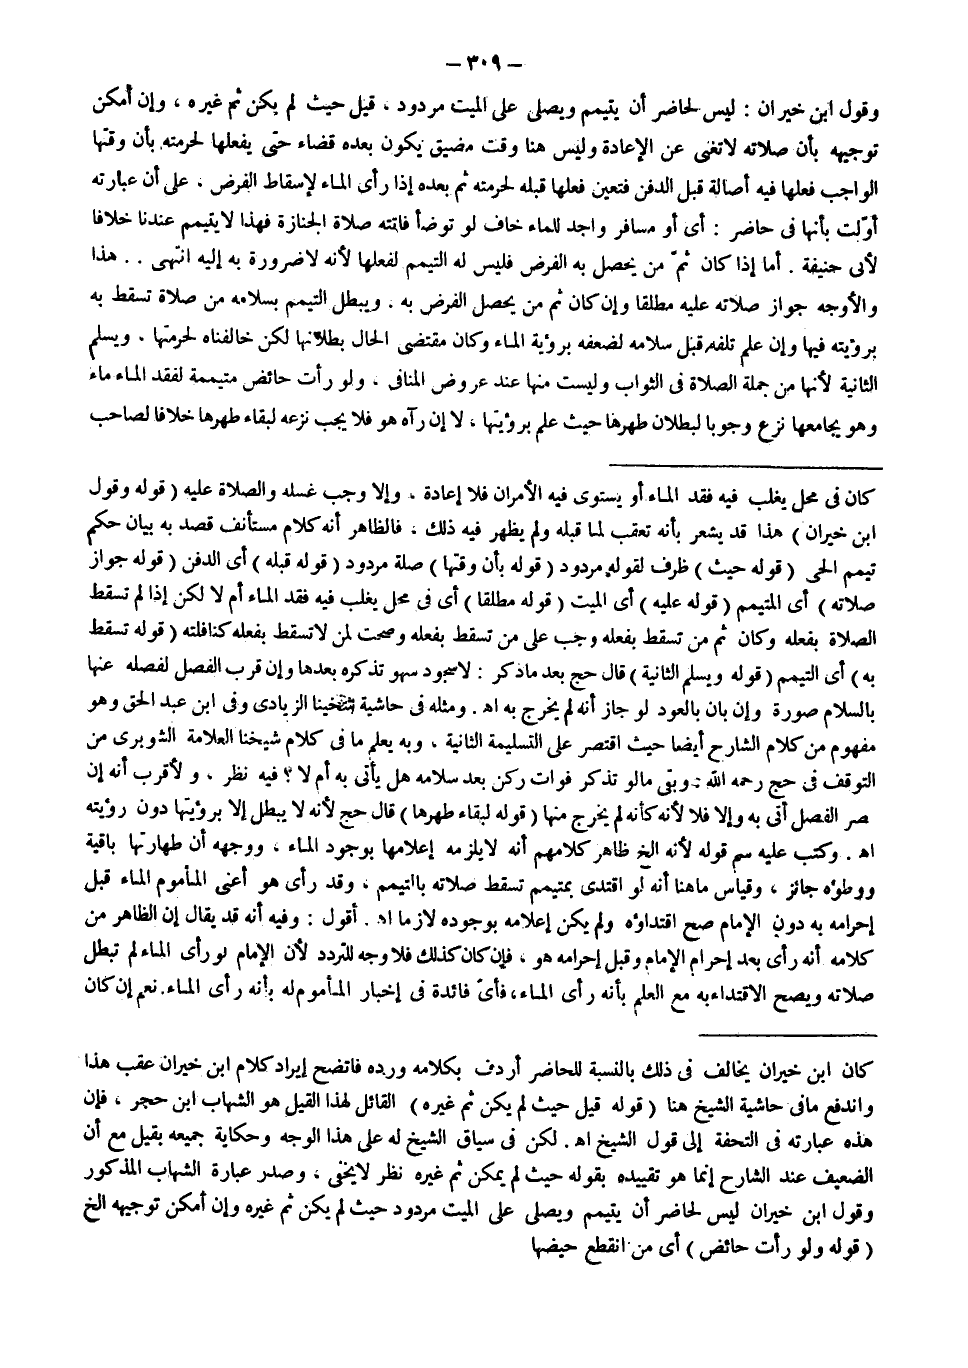 — ٣٠٩ —
وقول ابن خيران : ليس لحاضر أن يتيمم ويصلى على الميت مردود ، قيل حيث لم يكن ثم غيره ، وإن أمكن
توجيهه بأن صلاته لاتغنى عن الإعادة وليس هنا وقت مضيق يكون بعده قضاء حتى يفعلها لحرمته بأن وقتها
الواجب فعلها فيه أصالة قبل الدفن فتعين فعلها قبله لحرمته ثم بعده إذا رأى الماء لإسقاط الفرض ، على أن عبارته
أوّلت بأنها فى حاضر : أى أو مسافر واجد للماء خاف لو توضأ فاتته صلاة الجنازة فهذا لايتيمم عندنا خلافا
لأبى حنيفة . أما إذا كان ثمّ من يحصل به الفرض فليس له التيمم لفعلها لأنه لاضرورة به إليه انتهى . . هذا
والأوجه جواز صلاته عليه مطلقا وإن كان ثم من يحصل الفرض به . ويبطل التيمم بسلامه من صلاة تسقط به
برؤيته فيها وإن علم تلفه قبل سلامه لضعفه برؤية الماء وكان مقتضى الحال بطلانها لكن خالفناه لحرمتها . ويسلم
الثانية لأنها من جملة الصلاة فى الثواب وليست منها عند عروض المنافى ، ولو رأت حائض متيممة لفقد الماء ماء
وهو يجامعها نزع وجوبا لبطلان طهرها حيث علم برؤيتها ، لا إن رآه هو فلا يجب نزعه لبقاء طهرها خلافا لصاحب
كان فى محل يغلب فيه فقد الماء أو يستوى فيه الأمران فلا إعادة ، وإلا وجب غسله والصلاة عليه ( قوله وقول
ابن خيران ) هذا قد يشعر بأنه تعقب لما قبله ولم يظهر فيه ذلك ، فالظاهر أنه كلام مستأنف قصد به بيان حكم
تيمم الحى ( قوله حيث ) ظرف لقوله مردود ( قوله بأن وقتها ) صلة مردود ( قوله قبله ) أى الدفن ( قوله جواز
صلاته ) أى المتيمم ( قوله عليه ) أى الميت ( قوله مطلقا ) أى فى محل يغلب فيه فقد الماء أم لا لكن إذا لم تسقط
الصلاة بفعله وكان ثم من تسقط بفعله وجب على من تسقط بفعله وصحت لمن لاتسقط بفعله كنافلته ( قوله تسقط
به ) أى التيمم ( قوله ويسلم الثانية ) قال حج بعد ماذكر : لاسجود سهو تذكره بعدها وإن قرب الفصل لفصله عنها
بالسلام صورة وإن بان بالعود لو جاز أنه لم يخرج به اه . ومثله فى حاشية شيخينا الزيادى وفى ابن عبد الحق وهو
مفهوم من كلام الشارح أيضا حيث اقتصر على التسليمة الثانية ، وبه يعلم ما فى كلام شيخنا العلامة الشوبرى من
التوقف فى حج رحمه الله : وبقى مالو تذكر فوات ركن بعد سلامه هل يأتى به أم لا ؟ فيه نظر ، و لأقرب أنه إن
صر الفصل أتى به وإلا فلا لأنه كأنه لم يخرج منها ( قوله لبقاء طهرها ) قال حج لأنه لا يبطل إلا برؤيتها دون رؤيته
اه . وكتب عليه سم قوله لأنه الخ ظاهر كلامهم أنه لايلزمه إعلامها بوجود الماء ، ووجهه أن طهارتها باقية
ووطؤه جائز ، وقياس ماهنا أنه لو اقتدى بمتيمم تسقط صلاته بالتيمم ، وقد رأى هو أعنى المأموم الماء قبل
إحرامه به دون الإمام صح اقتداؤه ولم يكن إعلامه بوجوده لازما اه . أقول : وفيه أنه قد يقال إن الظاهر من
كلامه أنه رأى بعد إحرام الإمام وقبل إحرامه هو ، فإن كان كذلك فلا وجه للتردد لأن الإمام لو رأى الماء لم تبطل
صلاته ويصح الاقتداء به مع العلم بأنه رأى الماء ، فأىّ فائدة فى إخبار المأموم له بأنه رأى الماء . نعم إن كان
كان ابن خيران يخالف فى ذلك بالنسبة للحاضر أردف بكلامه ورده فاتضح إيراد كلام ابن خيران عقب هذا
واندفع مافى حاشية الشيخ هنا ( قوله قيل حيث لم يكن ثم غيره ) القائل لهذا القيل هو الشهاب ابن حجر ، فإن
هذه عبارته فى التحفة إلى قول الشيخ اه . لكن فى سياق الشيخ له على هذا الوجه وحكاية جميعه بقيل مع أن
الضعيف عند الشارح إنما هو تقييده بقوله حيث لم يمكن ثم غيره نظر لايخفى ، وصدر عبارة الشهاب المذكور
وقول ابن خيران ليس لحاضر أن يتيمم ويصلى على الميت مردود حيث لم يكن ثم غيره وإن أمكن توجيهه الخ
( قوله ولو رأت حائض ) أى من انقطع حيضها